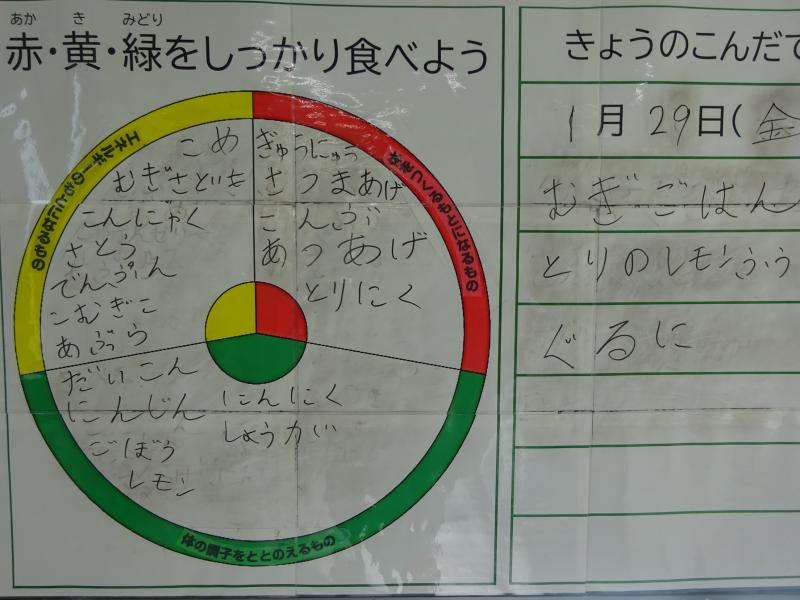 あか き みどり
赤・黄・緑をしっかり食べよう
エネルギーのもとになるもの
こめ
むぎ さといも
こんにゃく
さとう
でんぷん
こむぎこ
あぶら
体をつくるもとになるもの
ぎゅうにゅう
さつまあげ
こんぶ
あつあげ
とりにく
だいこん
にんじん
ごぼう
レモン
にんにく
しょうが
体の調子をととのえるもの
きょうのこんだて
1月29日(金
むぎごはん
とりのレモンふう
ぐるに